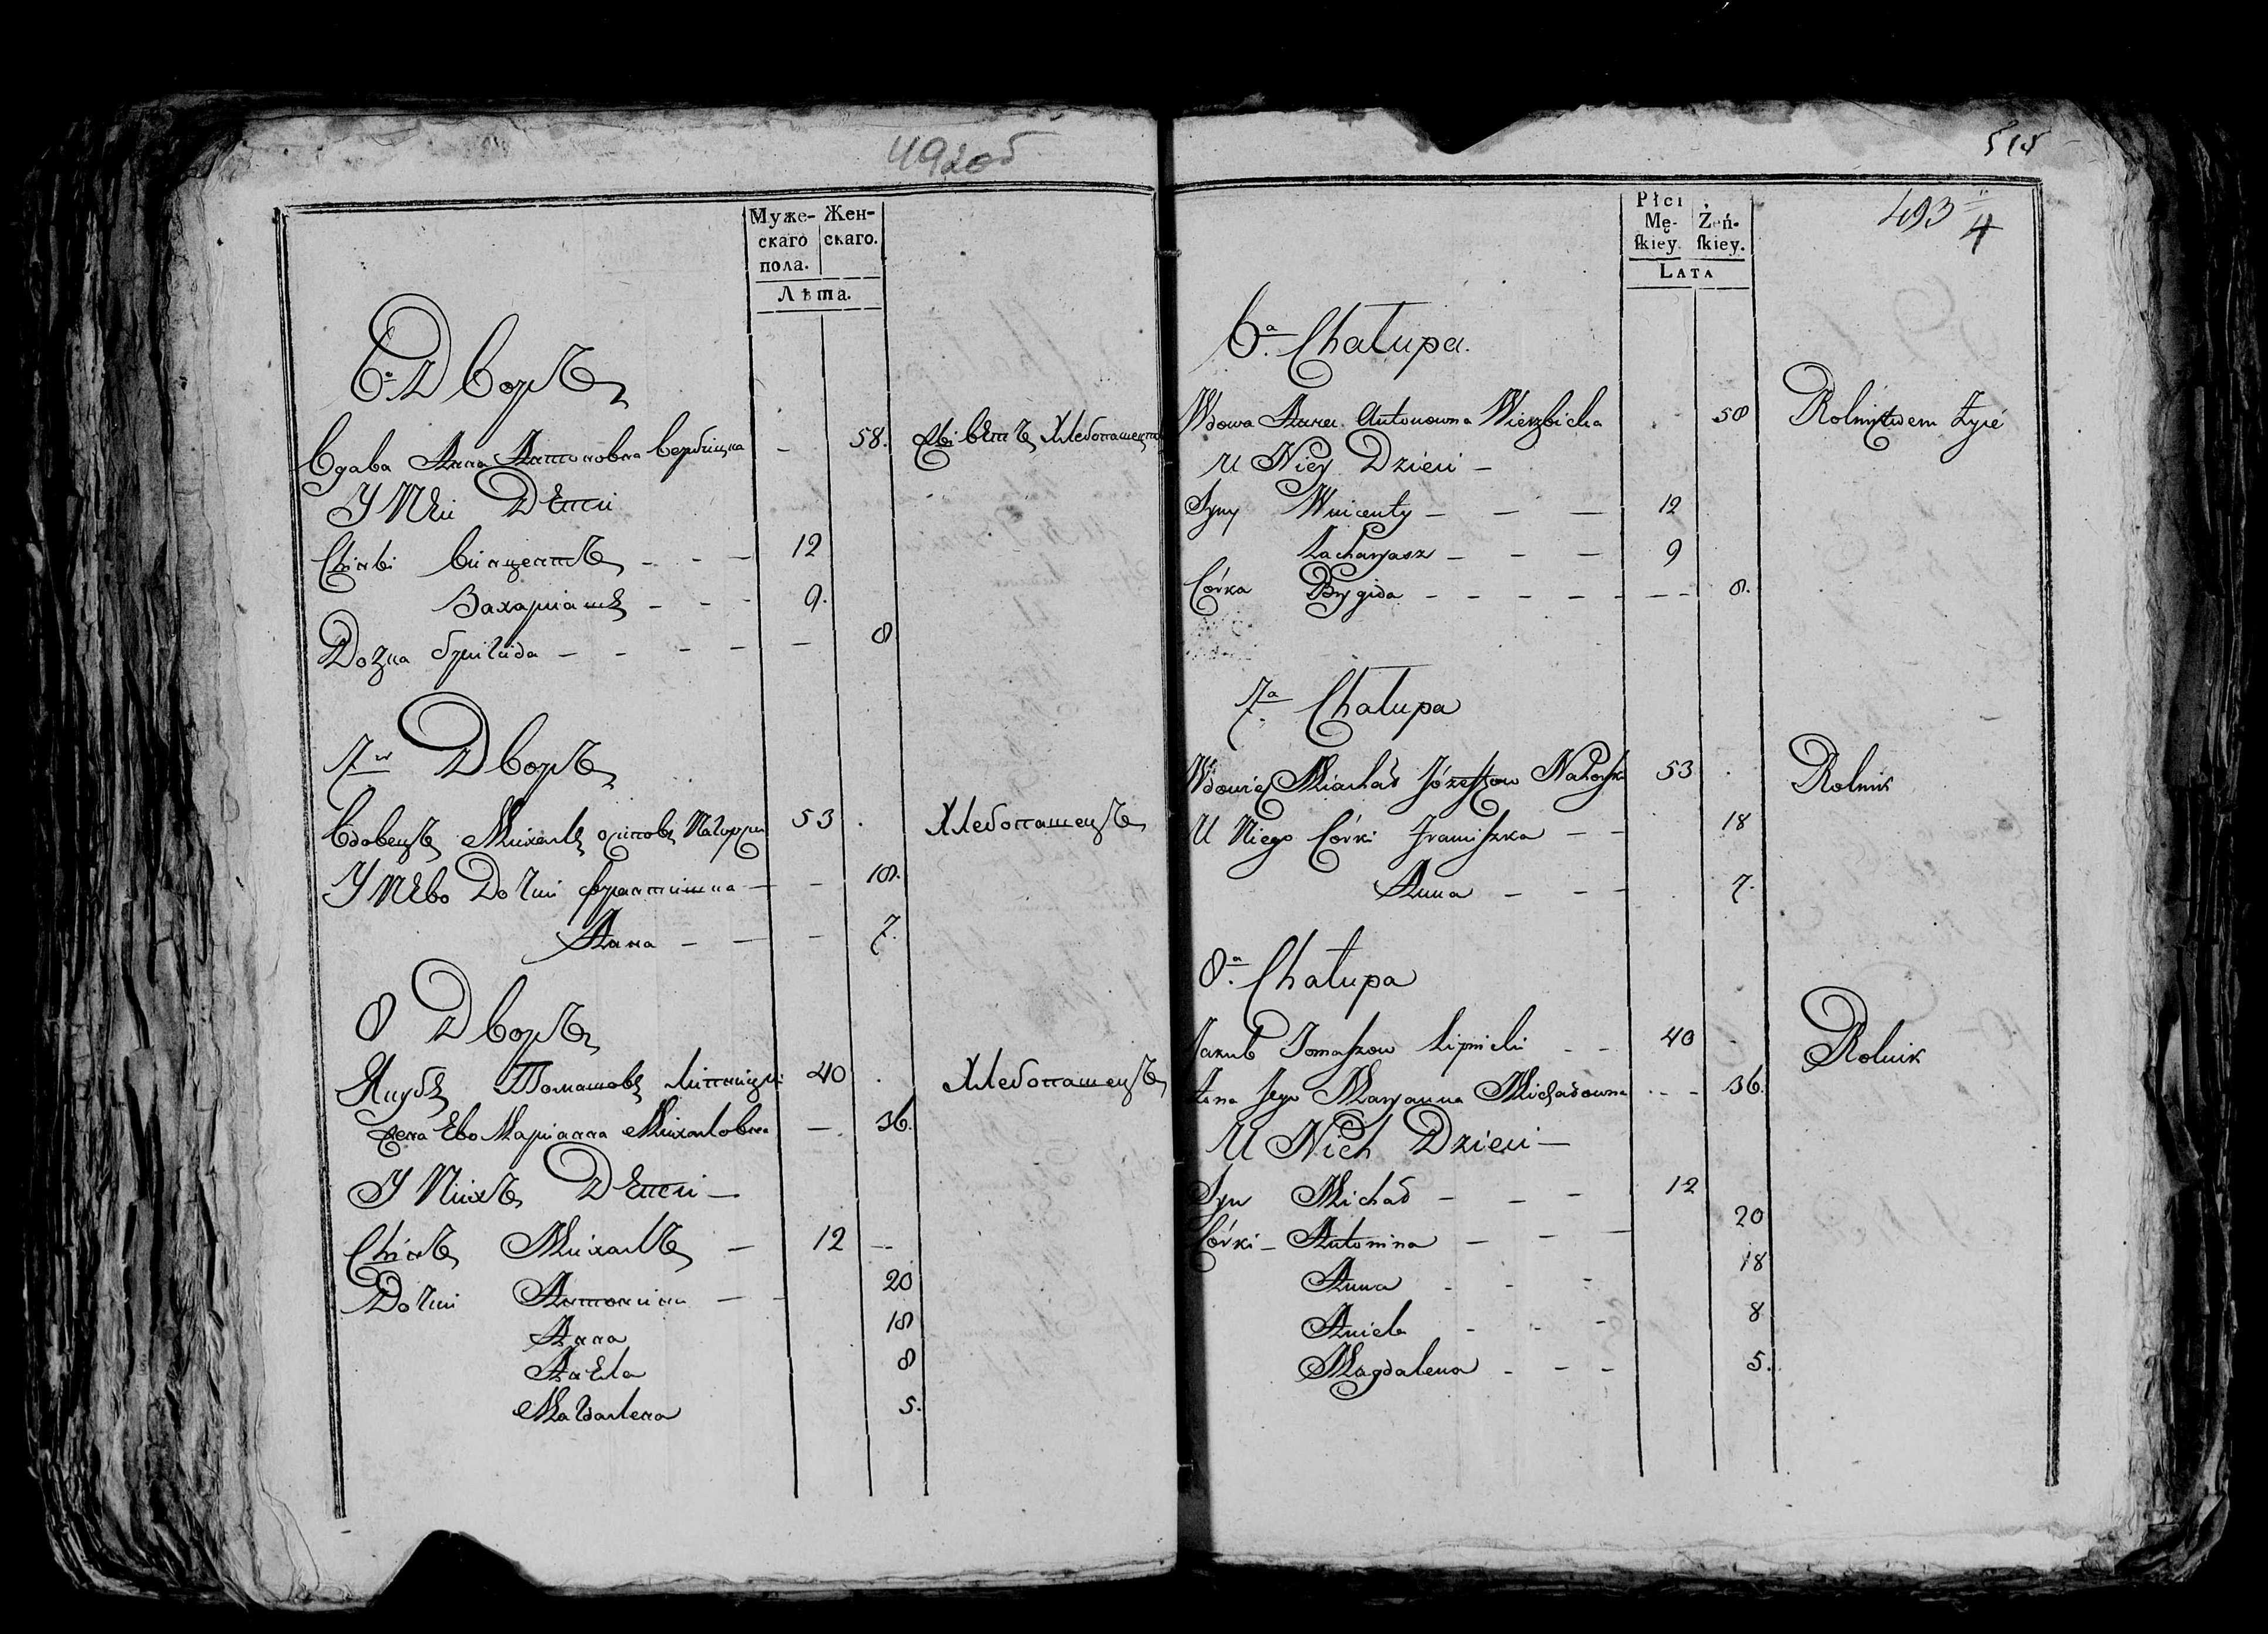 492об
Муже- Жен-
скаго скаго.
пола.
Лѣта.
6й Дворъ
Вдава Анна Антоновна Вербицка - 58. Живетъ Хлебопашеств
У Нѣи Дѣти
Сыны Винцентъ - - - 12
Захариашъ - - - 9.
Дочка Бригида - - - - - 8
7й Дворъ
Вдовецъ Михалъ Осиповъ 53 . Хлебопашецъ
У Нѣво Дочки Францишка - - 18.
Анна - - - 7.
8 Дворъ
Якубъ Томашовъ Липницки 40 . Хлебопашецъ
Жена Ево Марианна Михаловна - 36.
У Нихъ Дѣти -
Сынъ Михалъ - 12 -
Дочки Антонина - - 20
Анна 18
Анѣла 8
Магдалена 5.
515
493 4
Płci
Mę- Żeń-
ſkiey. ſkiey.
LATA
6a. Chałupa.
Wdowa Anna Antonowna Wierzbicka . 58 Rolnictwem Żyié
U Niey Dzieci -
Syny Wincenty - - - 12
Zacharyasz - - - 9
Córka Brygida - - - - - - - 8.
7a. Chałupa
Wdowiec Michał Józefow 53 . Rolnik
U Niego Córki Franciszka - - 18
Anna - - - 7.
8a. Chałupa
Jakub Tomaszow Lipnicki - - 40 . Rolnik
Żona Jego Maryanna Michałowna - - - 36.
U Nich Dzieci -
Syn Michał - - - 12
Córki - Antonina - - - 20
Anna - - - 18
Aniela - - - 8
Magdalena - - - 5.